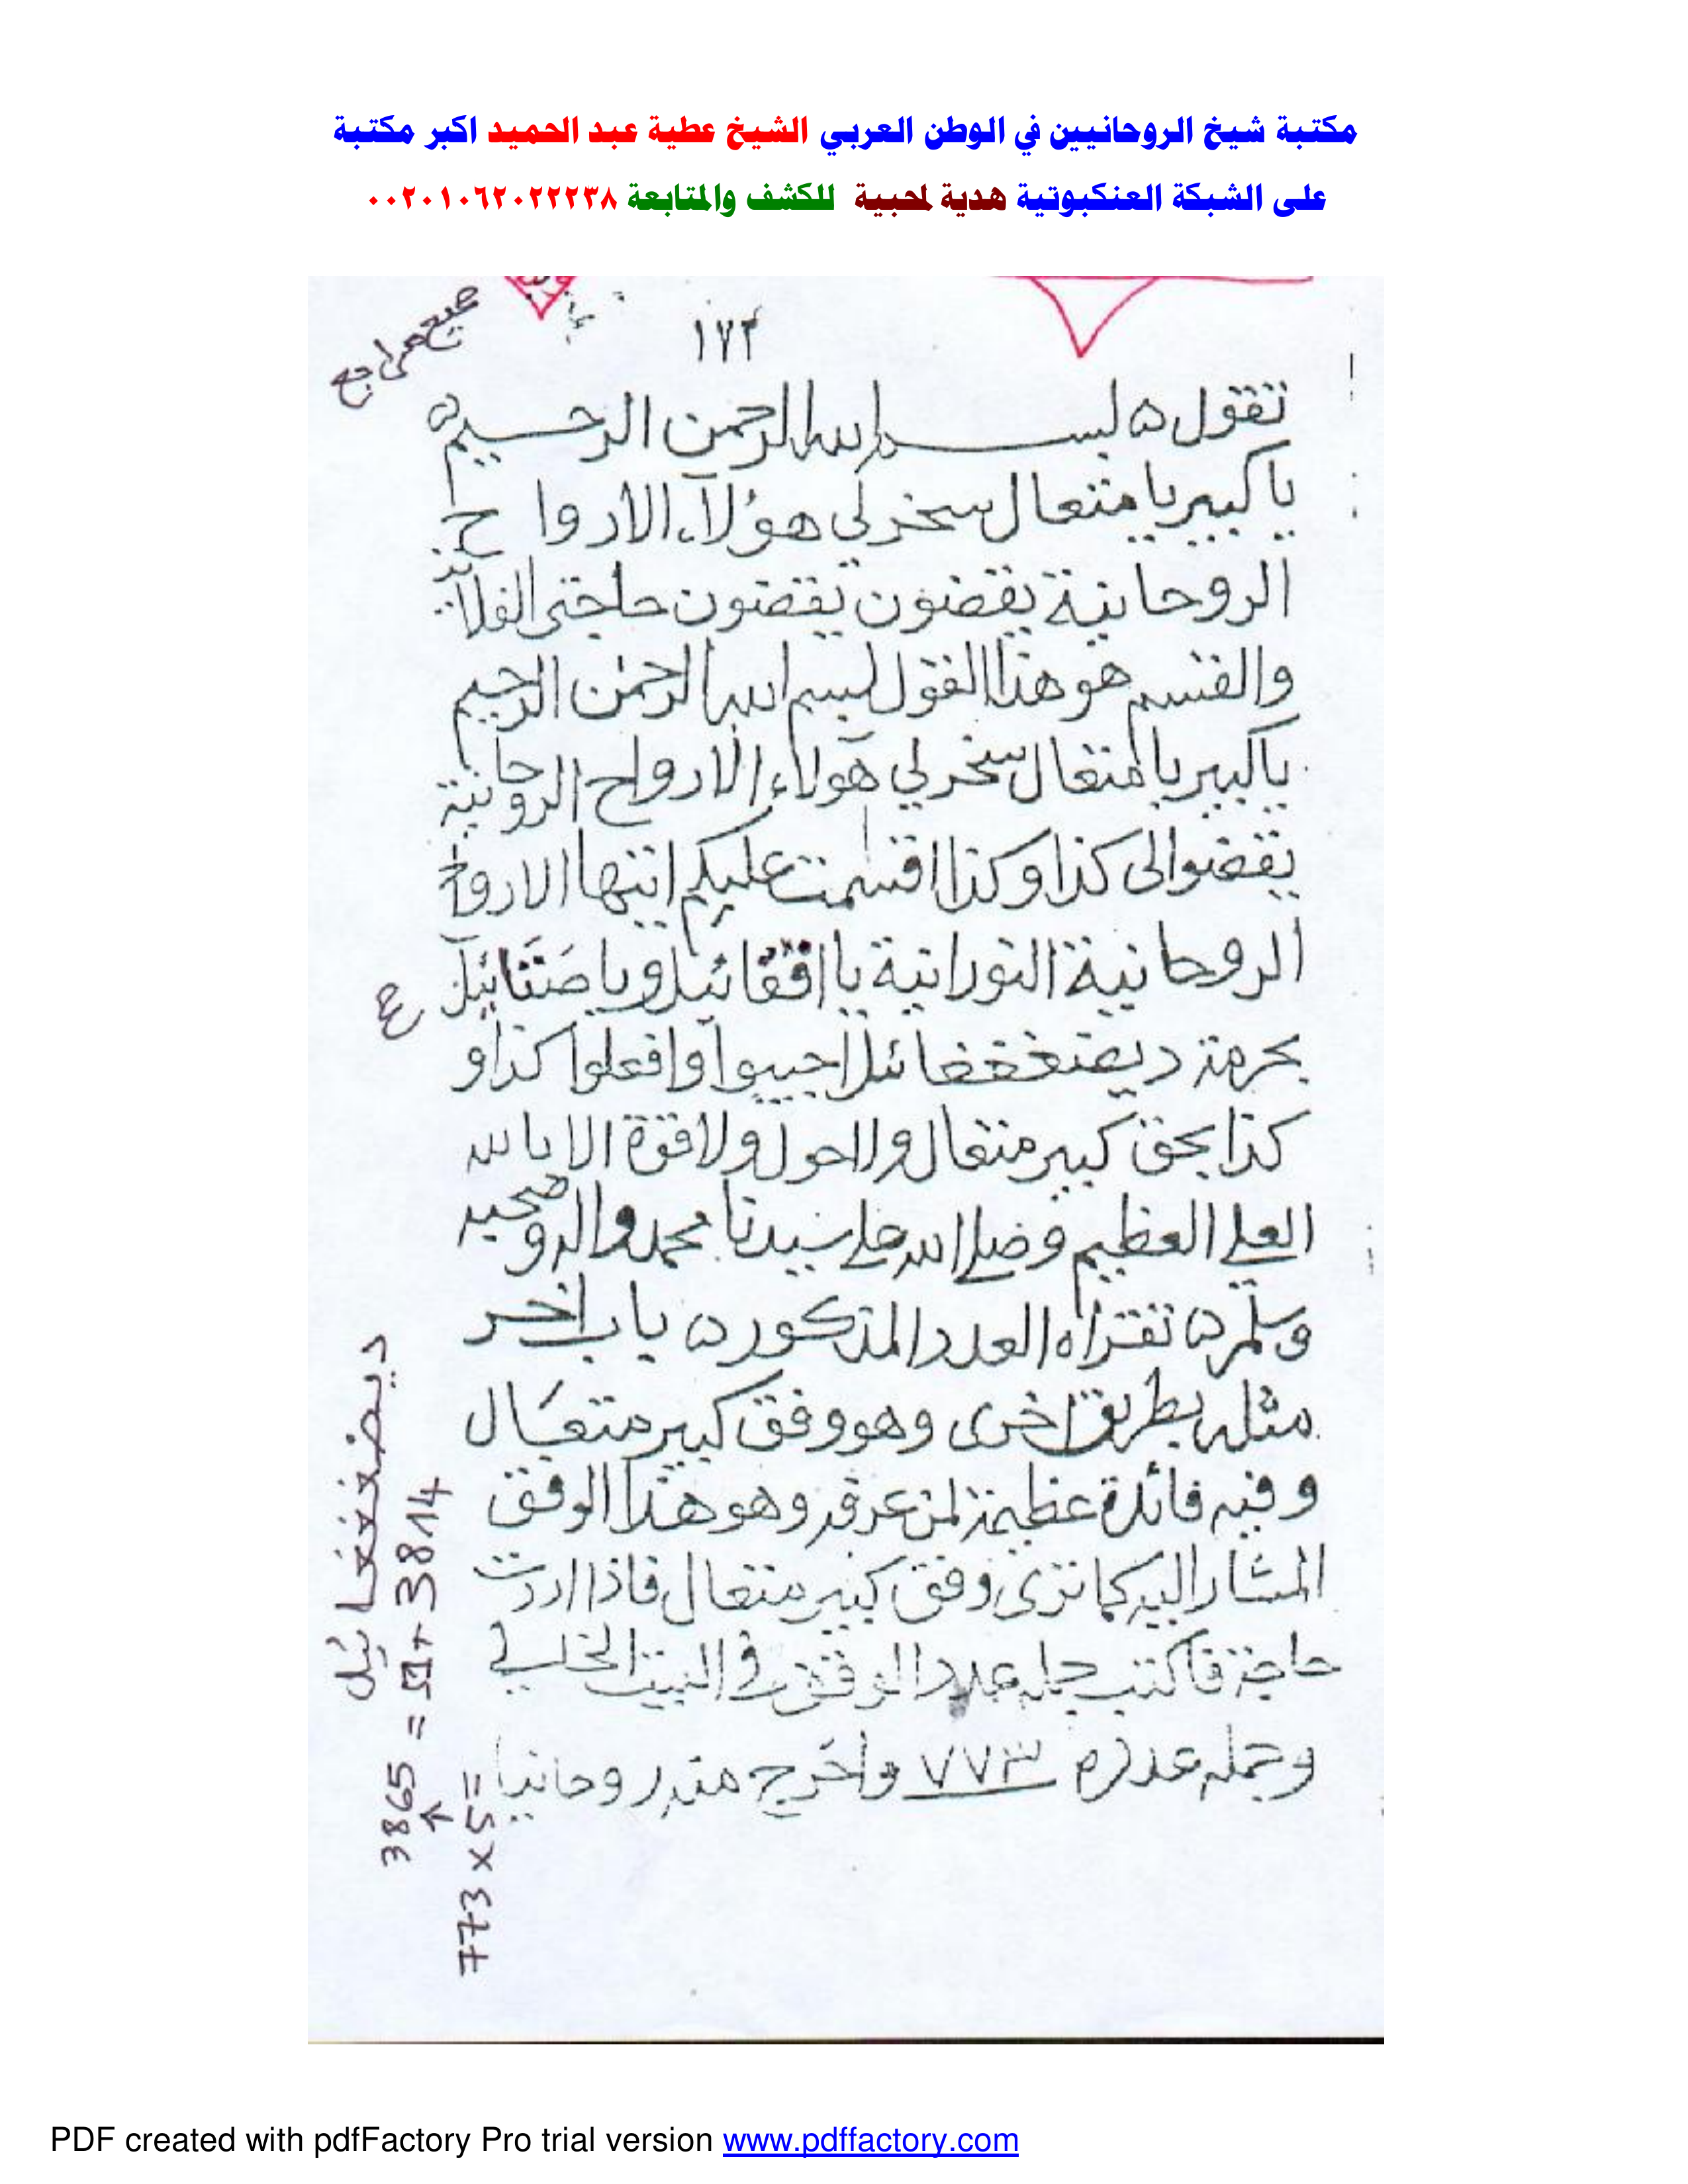 مكتبة شيخ الروحانيين في الوطن العربي الشيخ عطية عبد الحميد اكبر مكتبة
على الشبكة العنكبوتية هدية لمحبية للكشف والمتابعة ٠٠٢٠١٠٦٢٠٢٢٢٣٨
١٧٢
تقول ه بسم الله الرحمن الرحيم ه
يا كبير يا متعال سخر لي هؤلآء الارواح
الروحانية يقضون يقضون حاجتي الفلانية
والقسم هو هذا القول بسم الله الرحمن الرحيم
يا كبير يا متعال سخر لي هولاء الارواح الروحانية
يقضوا لى كذا وكذا اقسمت عليكم ايتها الارواح
الروحانية النورانية يا
بحرمة اجيبوا وافعلوا كذا و
كذا بحق كبير متعال ولاحول ولا قوة الا بالله
العلي العظيم وصلى الله على سيدنا محمد واله وصحبه
وسلم ه تقراه العدد المذكور ه باب اخر
مثله بطريق اخرى وهو وفق كبير متعال
وفيه فائدة عظيمة لمن عرف وهو هذا الوفق
المشار اليه كما ترى وفق كبير متعال فاذا اردت
حاجة فاكتب جملة عدد الوفق في البيت الخالي
وجملة عدده ٧٧٣ واخرج منه روحانيا
ع
ديضغغغائيل
3865 = 51 + 3814
773 x 5 =
PDF created with pdfFactory Pro trial version www.pdffactory.com